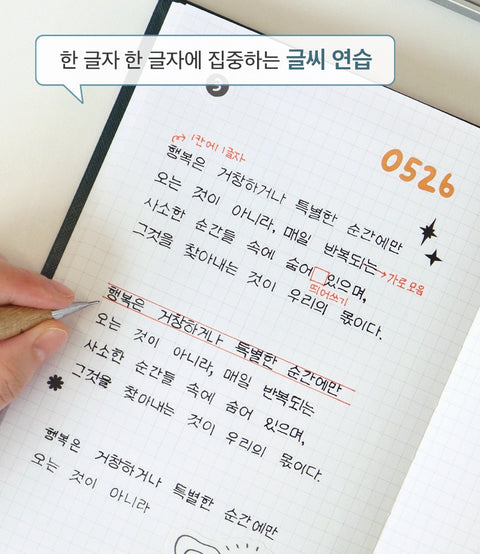 한 글자 한 글자에 집중하는 글씨 연습
3
1칸에 1글자
0526
행복은 거창하거나 특별한 순간에만
오는 것이 아니라, 매일 반복되는
가로모음
사소한 순간들 속에 숨어 있으며,
띄어쓰기
그것을 찾아내는 것이 우리의 몫이다.
행복은 거창하거나 특별한 순간에만
오는 것이 아니라, 매일 반복되는
사소한 순간들 속에 숨어 있으며,
그것을 찾아내는 것이 우리의 몫이다.
행복은 거창하거나 특별한 순간에만
오는 것이 아니라